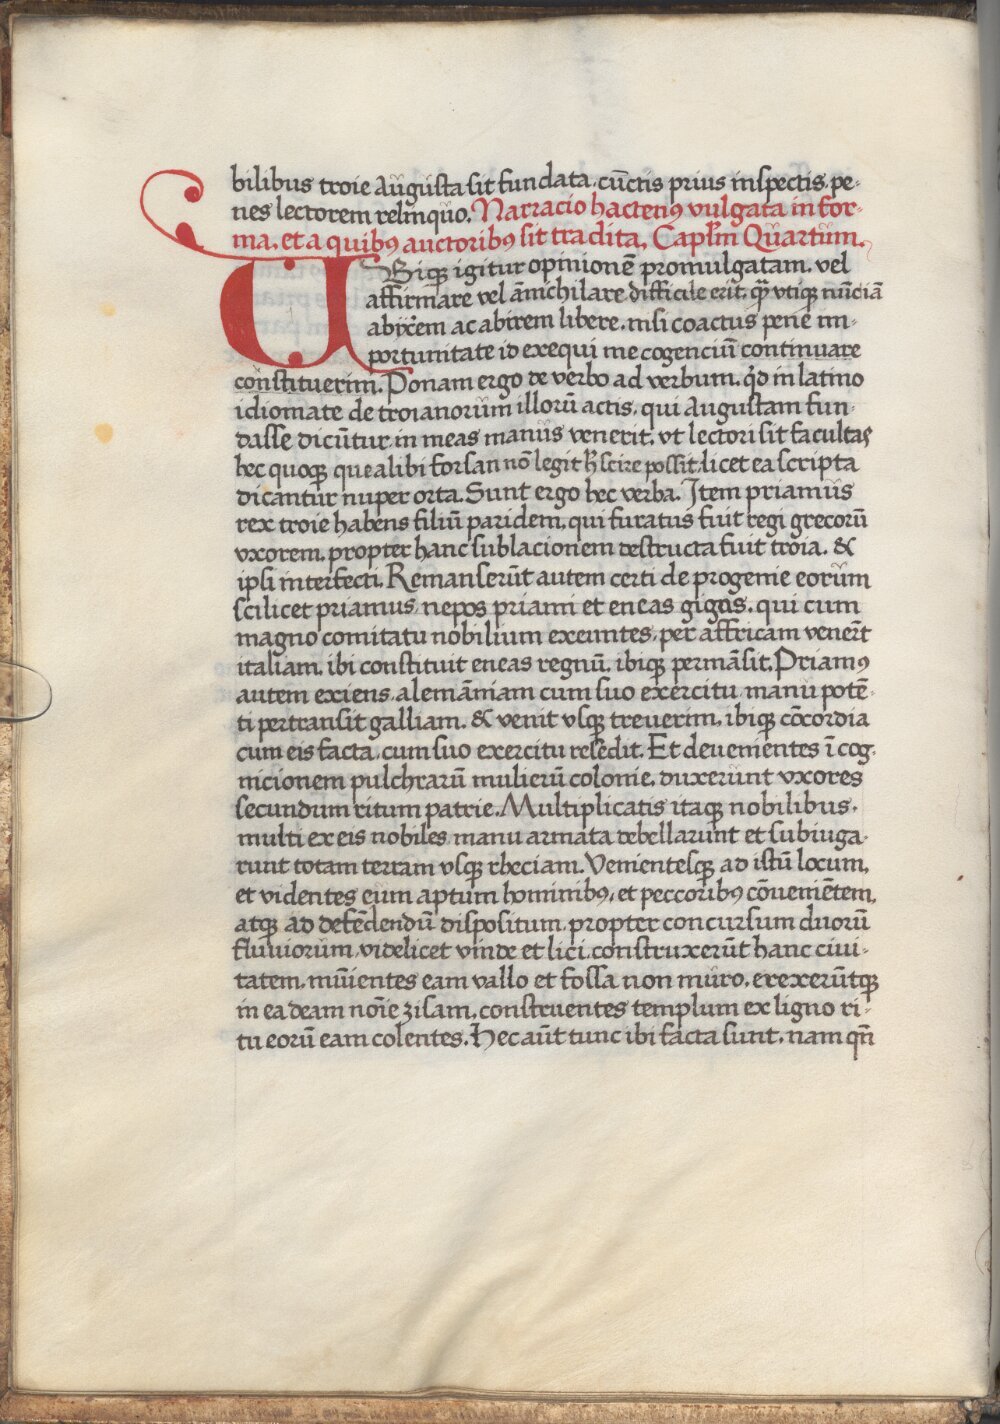 bilibus troie Augusta sit fundata, cūctis prius inspectis, pe-
nes lectorem relinquo. Narracio hactenꝰ vulgata in for-
ma, et a quibꝰ auctoribꝰ sit tradita, Caplm Quartum.
Ubiqꝫ igitur opinionē promulgatam, vel
affirmare vel ānichilare difficile erit,
abijcem ac abirem libere, nisi coactus pene im-
portunitate id exequi me cogenciū continuare
constituerim. Ponam ergo de verbo ad verbum, qd in latino
idiomate de troianorum illorū actis, qui Augustam fun-
dasse dicūtur, in meas manus venerit, vt lectori sit facultas
hec quoqꝫ que alibi forsan nō legit scire possit, licet ea scripta
dicantur nuper orta. Sunt ergo hec verba. Item priamus
rex troie habens filiū paridem, qui furatus fuit regi grecorū
vxorem, propter hanc sublacionem destructa fuit troia, &
ipsi interfecti. Remanserūt autem certi de progenie eorum
scilicet priamus, nepos priami et eneas gigas, qui cum
magno comitatu nobilium exeuntes, per affricam venert̄
italiam, ibi constituit eneas regnū, ibiqꝫ permāsit. Priamꝰ
autem exiens, alemāniam cum suo exercitu manu potē-
ti pertransit galliam, & venit vsqꝫ treuerim, ibiqꝫ cōcordia
cum eis facta, cum suo exercitu resedit. Et deuenientes ī cog-
nicionem pulchrarū mulierū colonie, duxerunt vxores
secundum ritum patrie. Multiplicatis itaqꝫ nobilibus,
multi ex eis nobiles manu armata debellarunt et subiuga-
runt totam terram vsqꝫ rheciam. Venientesqꝫ ad istū locum,
et videntes eum aptum hominibꝰ, et peccoribꝰ cōueniētem,
atqꝫ ad defēdendiū dispositum, propter concursum duorū
fluuiorum, videlicet vinde et lici, construxerūt hanc ciui-
tatem, mūientes eam vallo et fossa non muro, erexerūtqꝫ
in ea deam noīe zisam, construentes templum ex ligno ri-
tu eorū eam colentes. Hec aūt tunc ibi facta sunt, nam qn̄